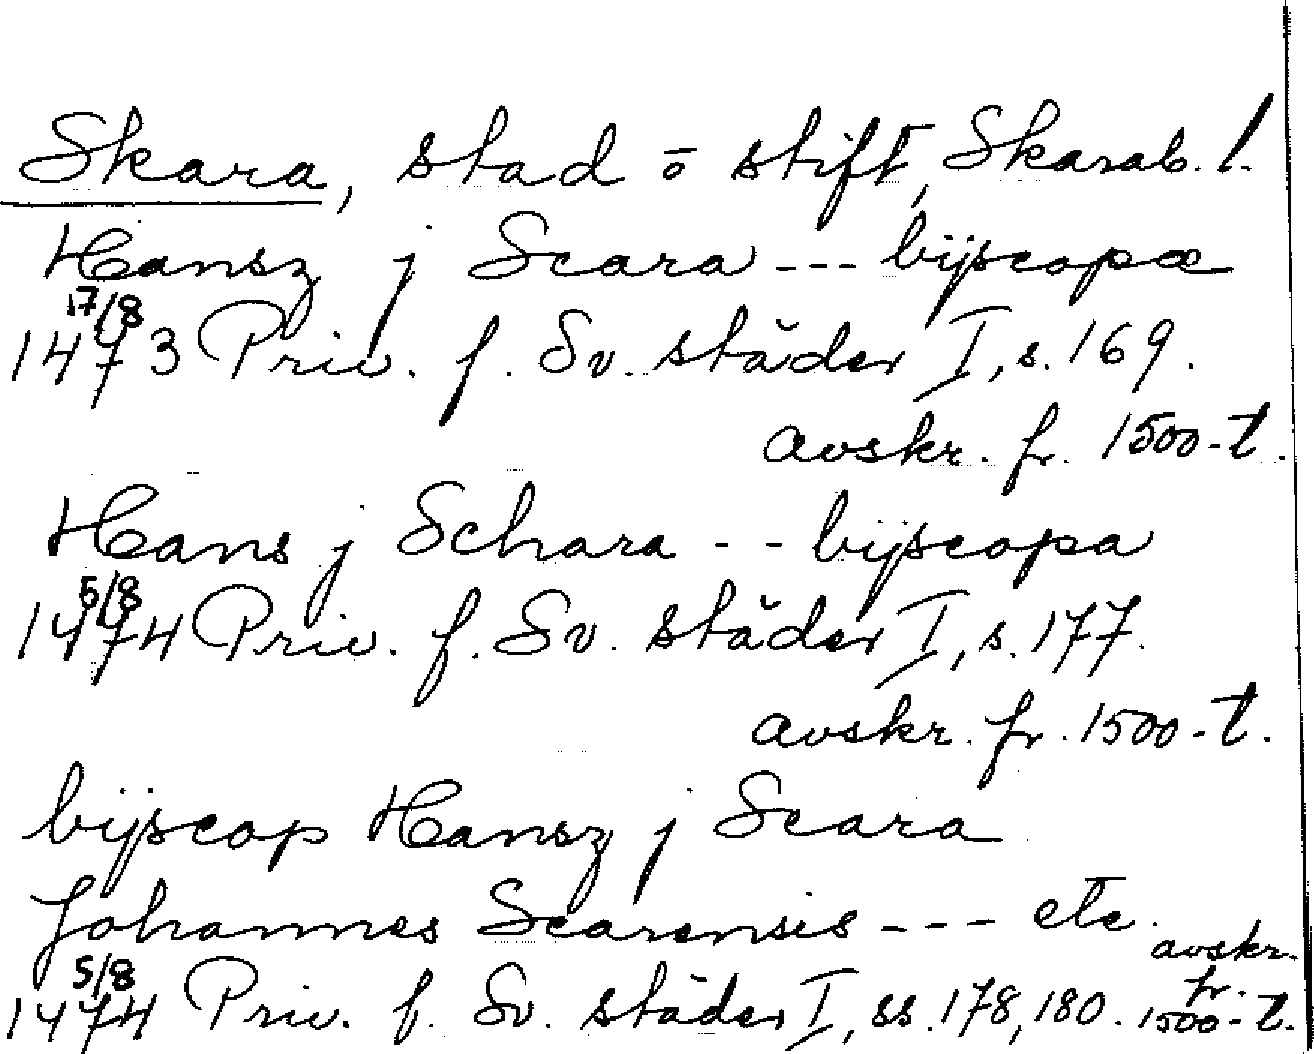 Skara, stad o stift, Skarab. l.
Hansz j Scara --- bijscopæ
17/8
1473 Priv. f. Sv. städer I, s. 169.
avskr. fr. 1500-t.
Hans j Schara -- bijscopa
5/8
1474 Priv. f. Sv. städer I, s. 177.
avskr. fr. 1500-t.
bijscop Hansz j Scara
Johannes Scarensis --- etc.
5/8
1474 Priv. f. Sv. städer I, ss. 178, 180. avskr. fr. 1500-t.